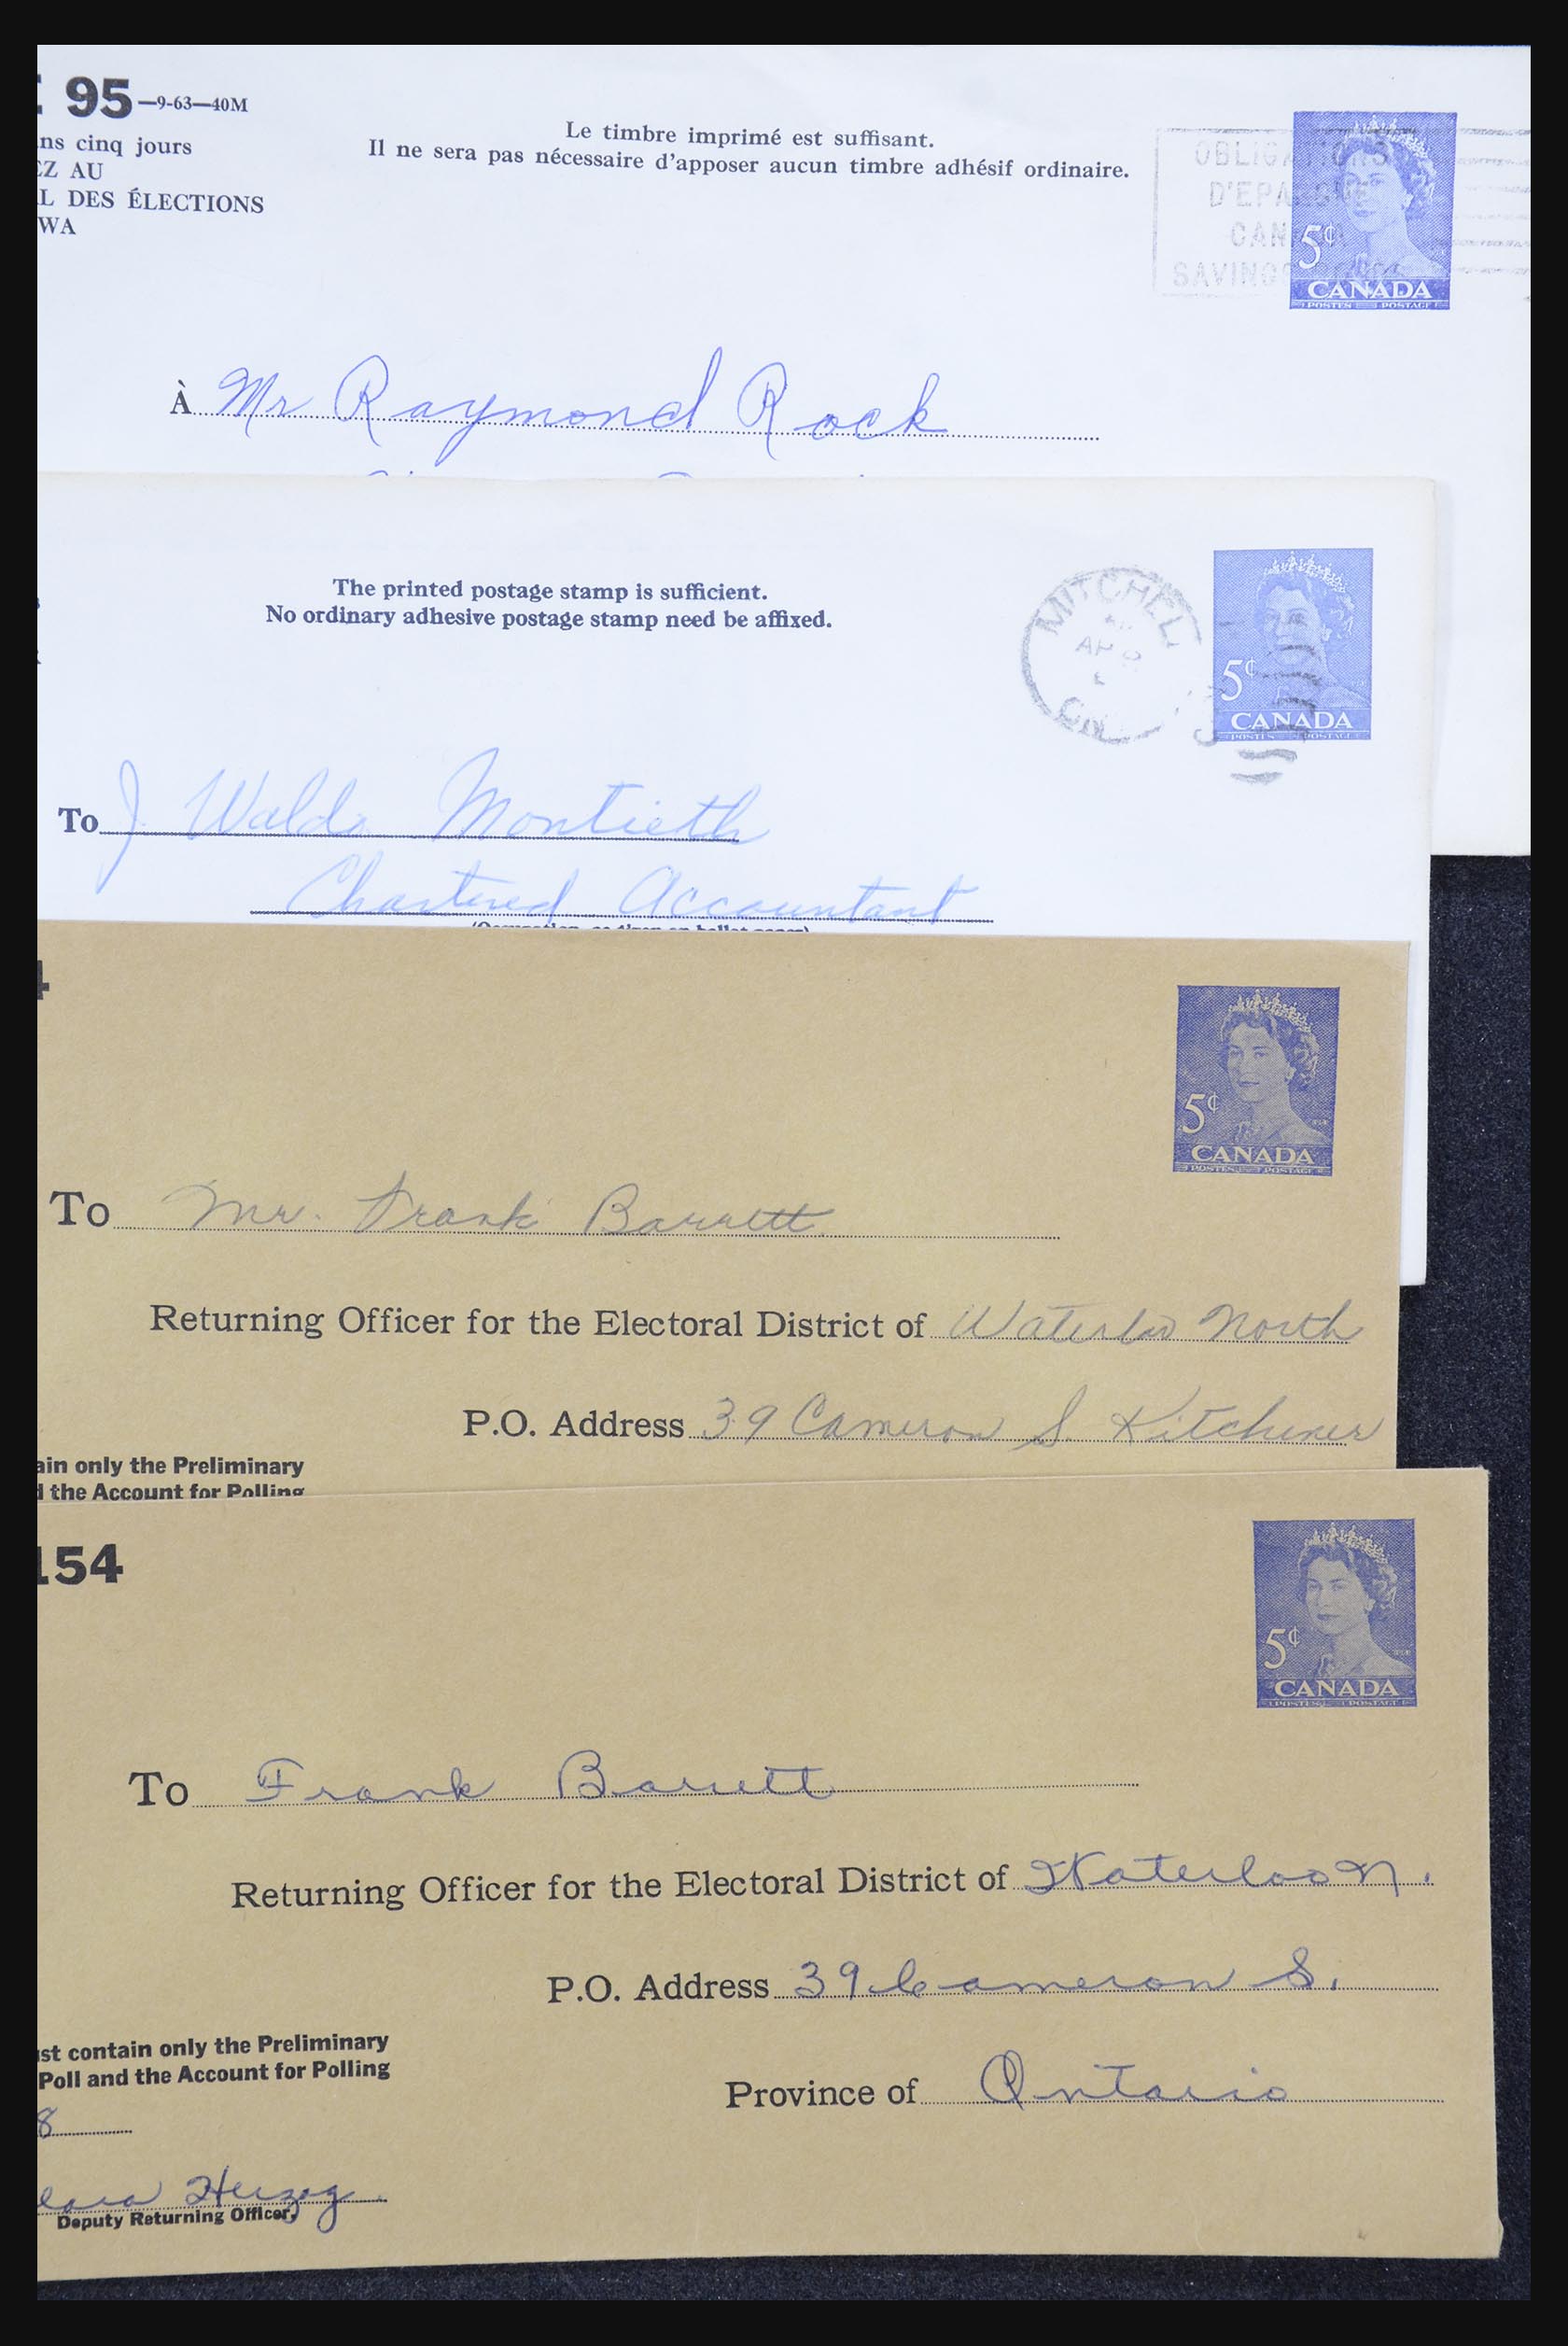 95—9-63—40M
ns cinq jours
EZ AU
L DES ÉLECTIONS
WA
Le timbre imprimé est suffisant.
Il ne sera pas nécessaire d'apposer aucun timbre adhésif ordinaire.
OBLIGATIONS
D'EPARGNE
CANADA
SAVINGS BONDS
5¢
CANADA
POSTES POSTAGE
À Mr Raymond Rock
The printed postage stamp is sufficient.
No ordinary adhesive postage stamp need be affixed.
MITCHELL
AP
5¢
CANADA
POSTES POSTAGE
To J. Waldo Montieth
Chartered Accountant
(Occupation, as given on ballot paper)
4
5¢
CANADA
POSTES POSTAGE
To Mr. Frank Barrett
Returning Officer for the Electoral District of Waterloo North
P.O. Address 39 Cameron S. Kitchener
ain only the Preliminary
d the Account for Polling
154
5¢
CANADA
POSTES POSTAGE
To Frank Barrett
Returning Officer for the Electoral District of Waterloo N.
P.O. Address 39 Cameron S.
ust contain only the Preliminary
Poll and the Account for Polling
8
Province of Ontario
lara Herzog
Deputy Returning Officer,